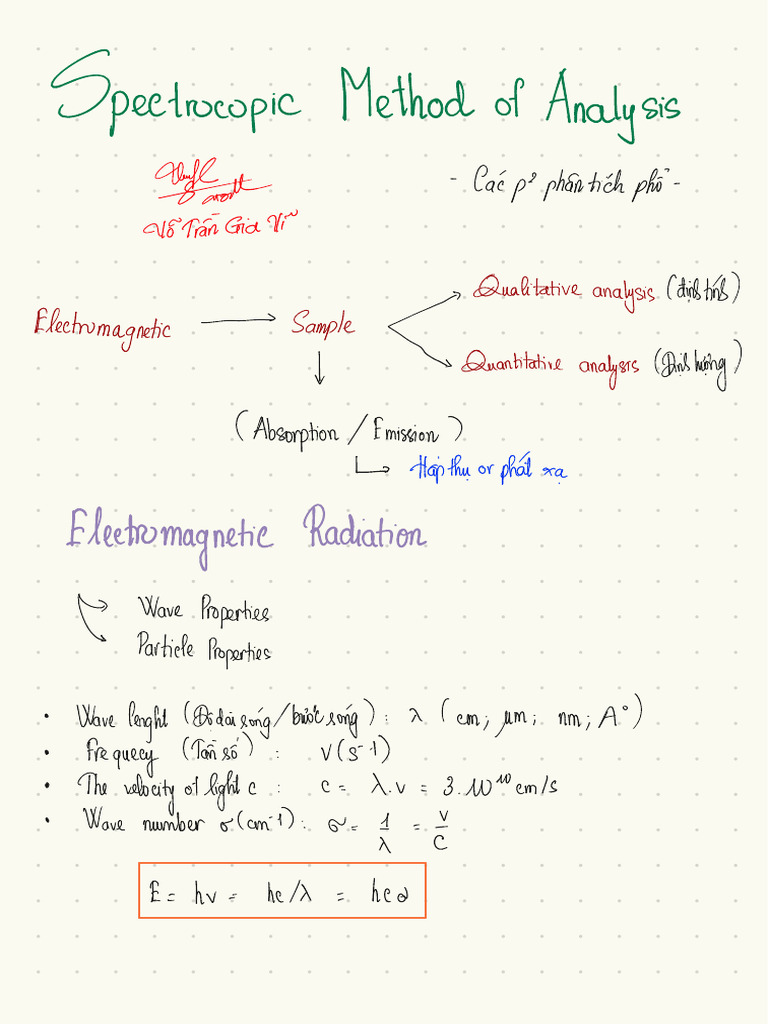 Spectrocopic Method of Analysis
- Các pp phân tích phổ -
Võ Trần Gia Vĩ
Electromagnetic → Sample
Qualitative analysis (định tính)
Quantitative analysis (Định lượng)
(Absorption / Emission)
Hấp thụ or phát xạ
Electromagnetic Radiation
Wave Properties
Particle Properties
• Wave lenght (Độ dài sóng/bước sóng) : λ (cm; μm; nm; A°)
• Frequecy (Tần số) : ν(s⁻¹)
• The velocity of light c : c = λ.ν = 3.10¹⁰ cm/s
• Wave number σ(cm⁻¹) : σ = 1/λ = ν/C
E = hν = hc/λ = hcσ